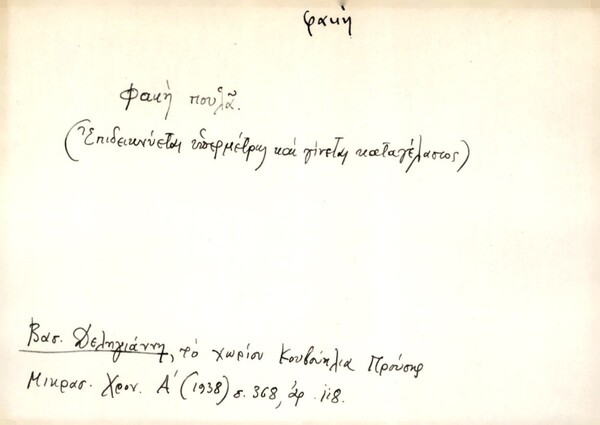 φακή
Φακὴ πουλᾶ.
(Ἐπιδεικνύεται ὑπερμέτρως καὶ γίνεται καταγέλαστος)
Βασ. Δεληγιάννη, τὸ χωρίον Κουβούκλια Προύσης
Μικρασ. Χρον. Α' (1938) σ. 368, ἀρ. 118.